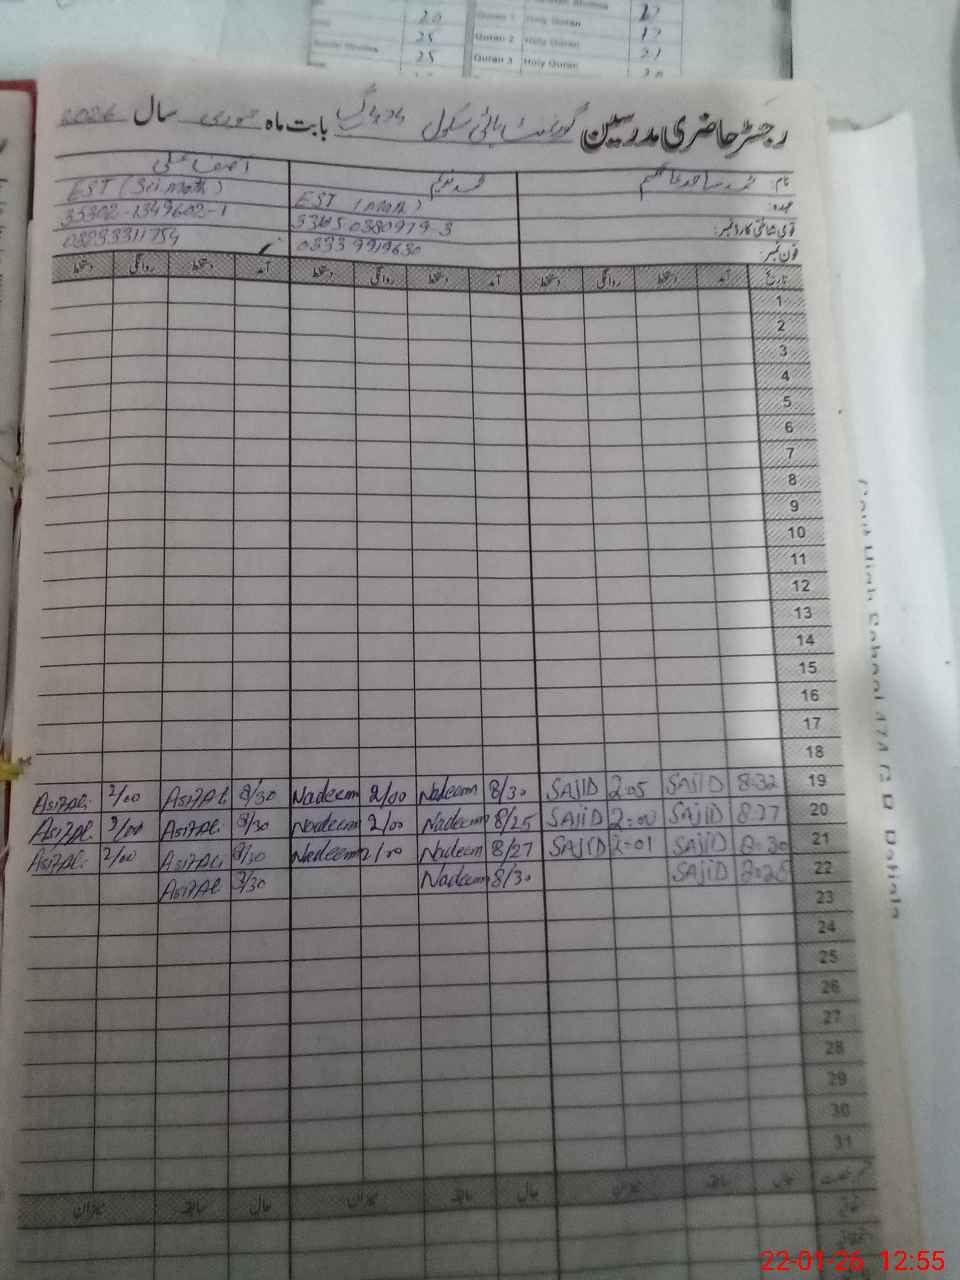 20
25
Quran 1 Holy Quran 17
Quran 2 Holy Quran 17
25 Quran 3 Holy Quran 21
رجسٹر حاضری مدرسین گورنمنٹ ہائی سکول بابت ماہ جنوری سال 2026
نام: محمد ندیم آصف علی
عہدہ: EST (Math) EST (Sci-Math)
قومی شناختی کارڈ نمبر: 35302-1349602-1
فون نمبر: 03339919630
تاریخ آمد دستخط روانگی دستخط آمد دستخط روانگی دستخط آمد دستخط روانگی دستخط
1
2
3
4
5
6
7
8
9
10
11
12
13
14
15
16
17
18
19 8:32 SAJID 2:05 SAJID 8/30 Nadeem 2/00 Nadeem 8/30 Asif Ali 2/00 Asif Ali
20 8:27 SAJID 2:00 SAJID 8/25 Nadeem 2/00 Nadeem 8/30 Asif Ali 2/00 Asif Ali
21 8:30 SAJID 2:01 SAJID 8/27 Nadeem 2/00 Nadeem 8/30 Asif Ali 2/00 Asif Ali
22 8:28 SAJID 8/30 Nadeem 8/30 Asif Ali
23
24
25
26
27
28
29
30
31
حال سابقہ میزان حال سابقہ میزان حال سابقہ میزان
Govt High School
22-01-26 12:55